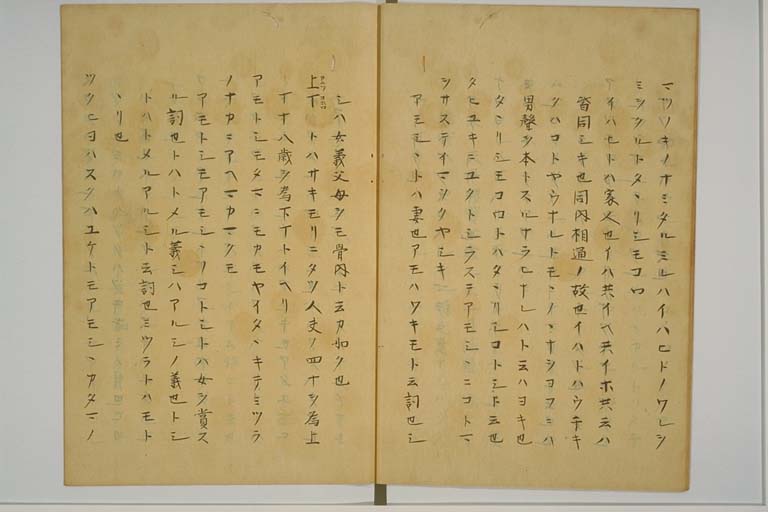 マツノキノナミタルミレハイハヒトノワレシ
ミシクルトタヽリシモコロ
アイハヒトハ家人也イハ共イヘ共イホ共云ハ
皆同シキ也同内相通ノ故也イハトハウチキ
男聲ヲ本トスルナラヒナレハト云ハヨキ也
タヽリシモコロトハタヽリアコトシト云也
タヒユキニユクトシラステアモシヽニコトマ
シサステイマシクヤシキ
アモシヽトハ妻也アモハワキモト云詞也シ
シハ女義父母シモ骨肉ト云カ如ク也
上丁 トハサキモリニタツ人丈ノ四ナシ為上
丁ナ八歳シ為下丁トイヘリ
アモトシモタマニモカモヤイタヽキテミツラ
ノナカニアヘマカマクモ
アモトシモアモシヽノコトシトハ女シ賞ス
ル詞也トハトメル義シハアルシノ義也トシ
トハトメルアルシト云詞也ミツラトハモト
ヽリ也
ツクヒヨハスクハユケトモアモシヽカタマノ